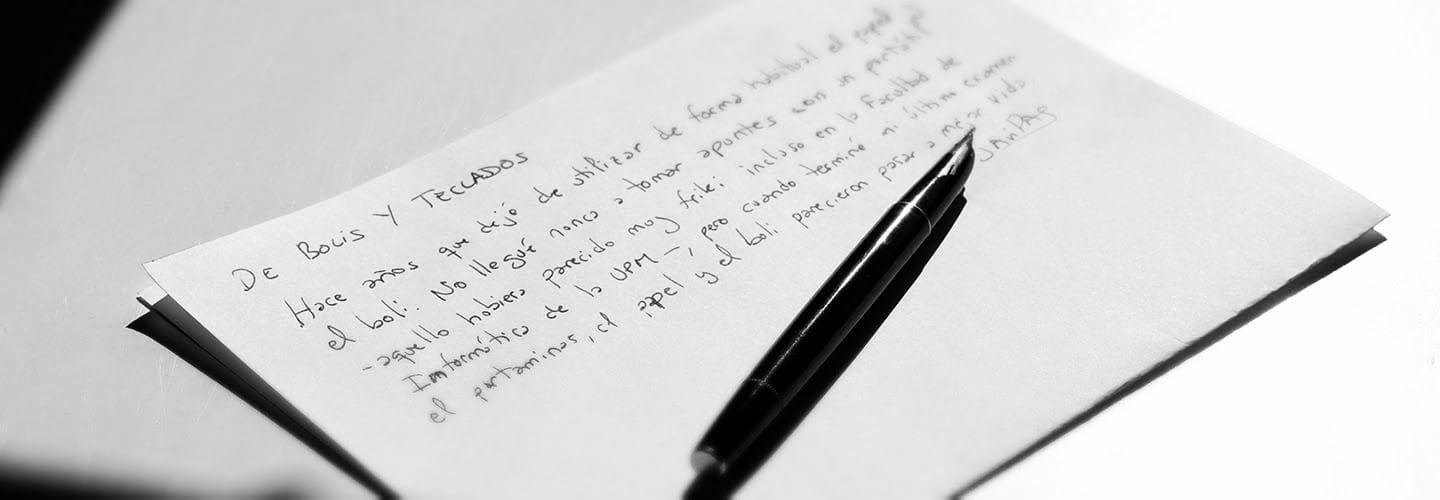 DE BOLIS Y TECLADOS
Hace años que dejó de utilizar de forma habitual el papel
el boli. No llegué nunca a tomar apuntes con un portátil
-aquello hubiera parecido muy friki incluso en la Facultad de
Informática de la UPM-, pero cuando terminé mi último examen
el portaminas, el papel y el boli parecieron pasar a mejor vida.